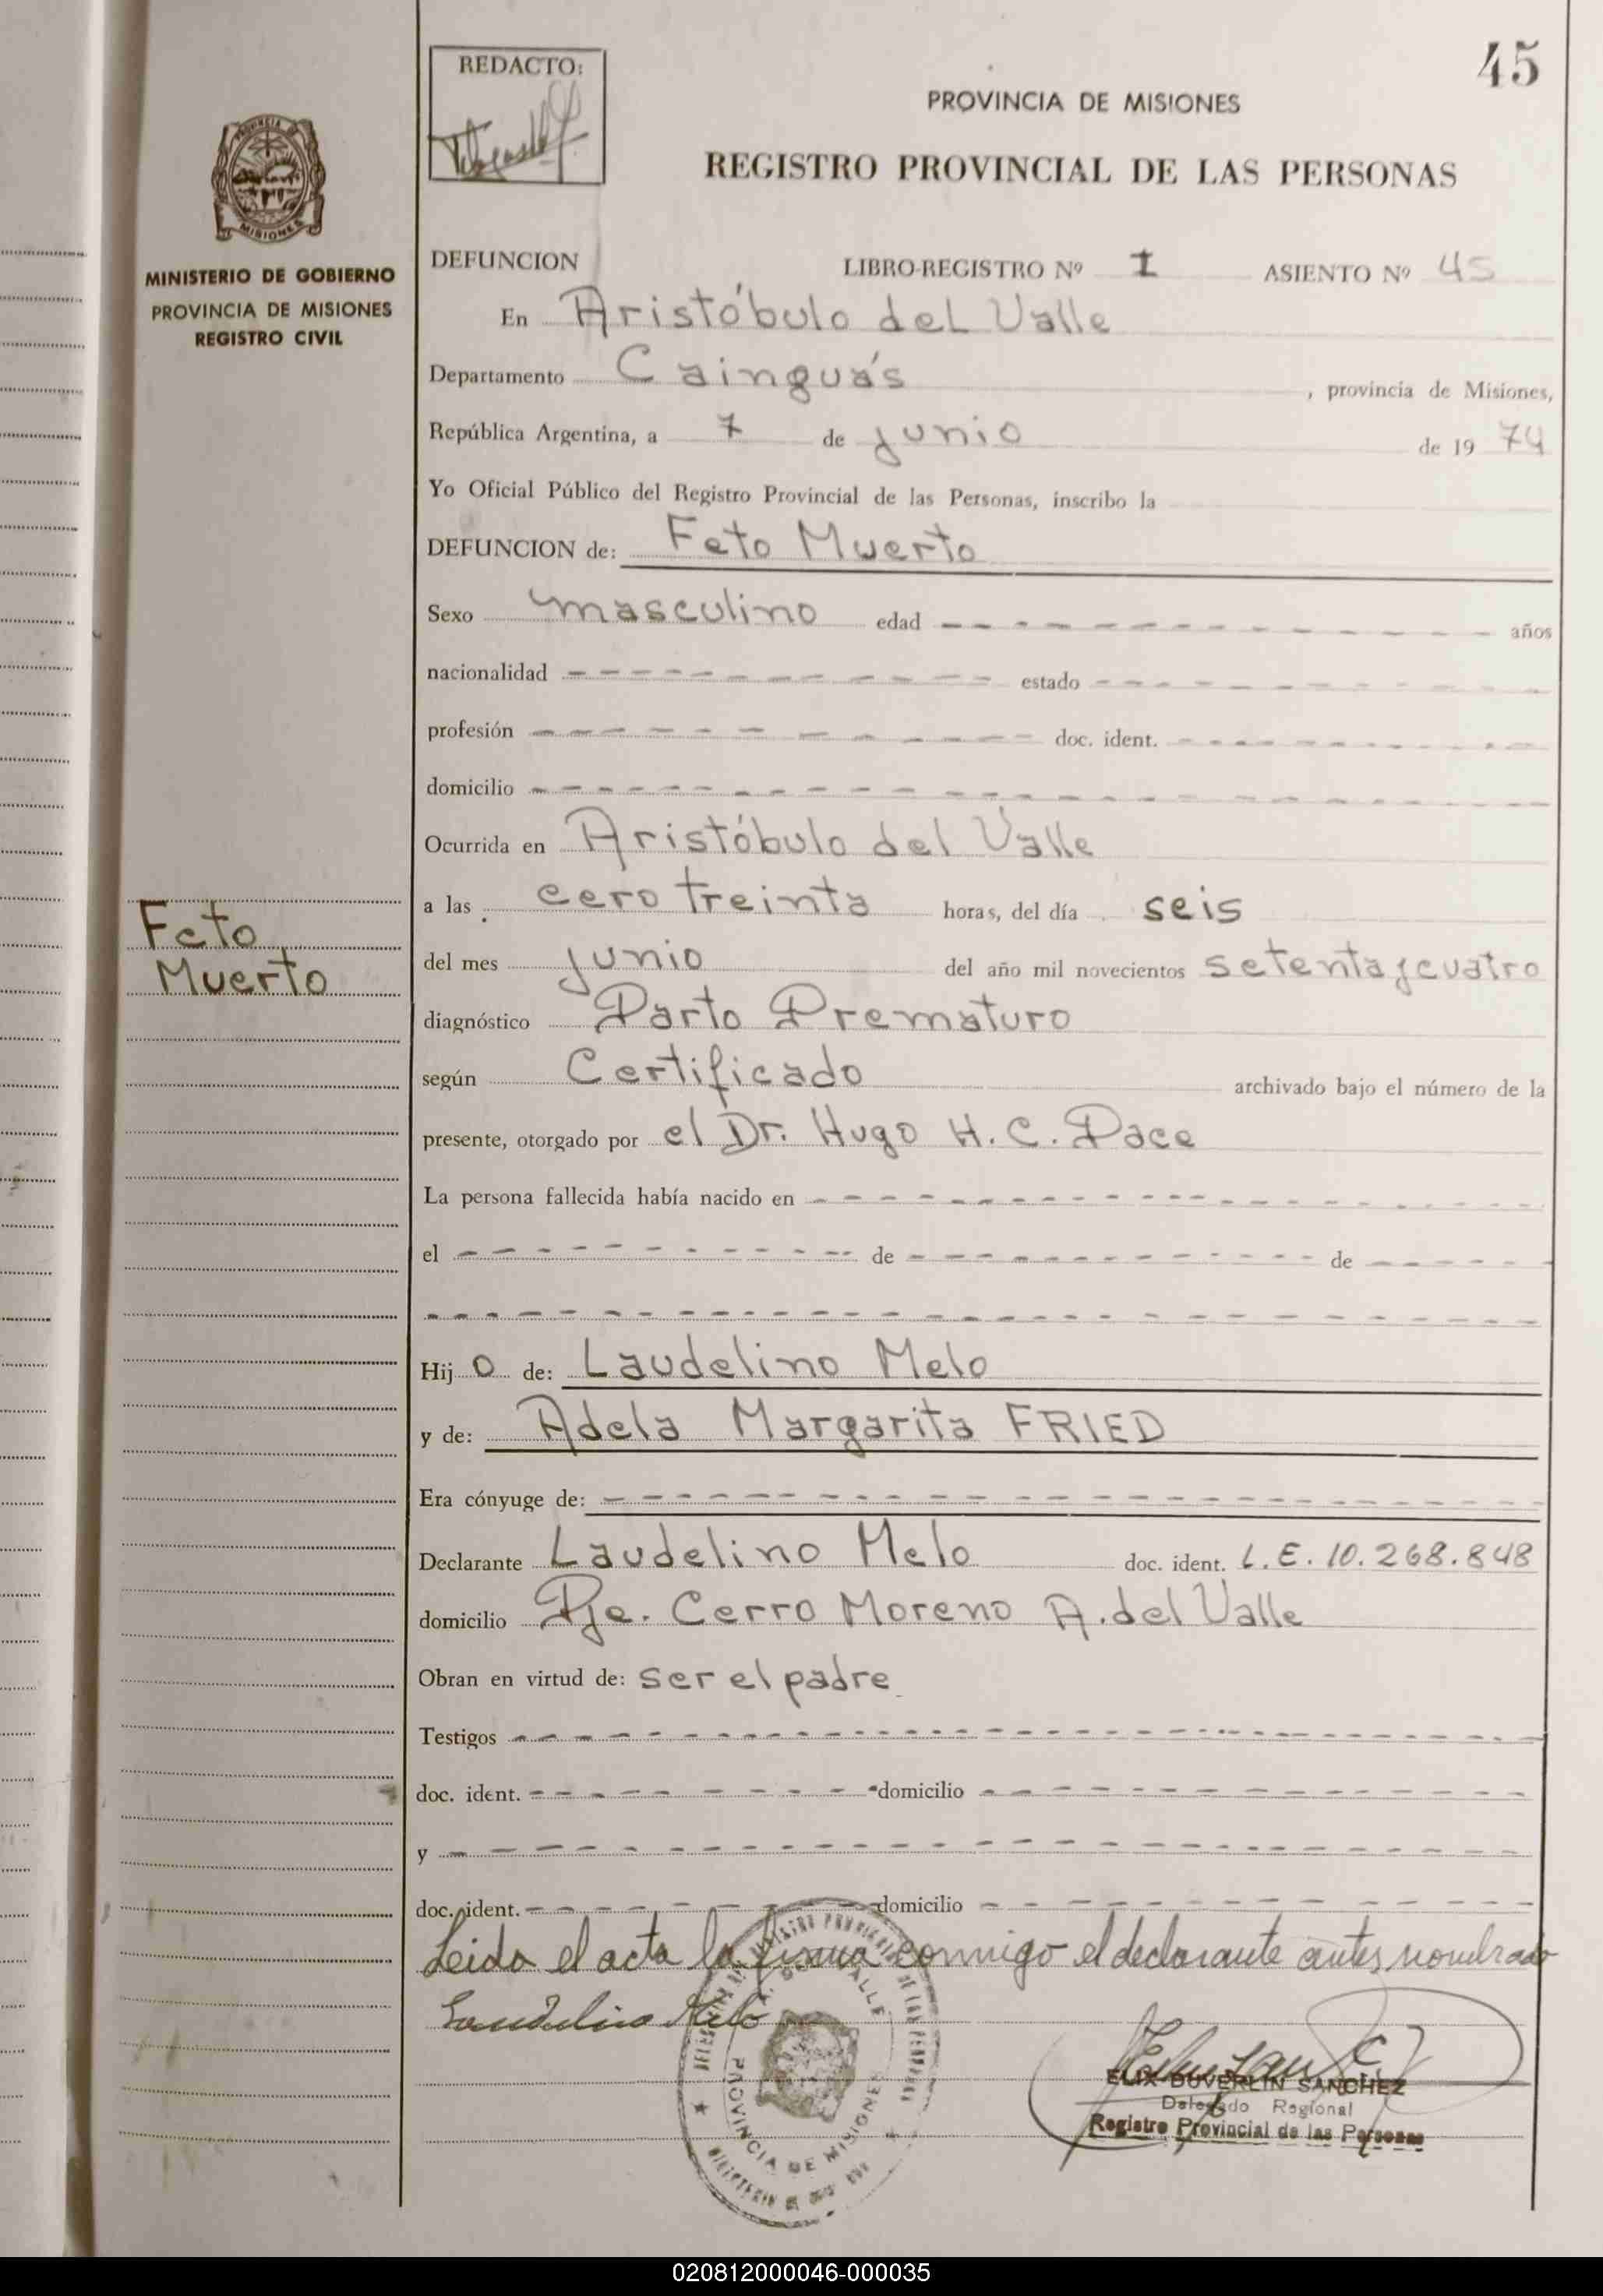 45
REDACTO:
PROVINCIA DE MISIONES
REGISTRO PROVINCIAL DE LAS PERSONAS
PROVINCIA DE
MISIONES
MINISTERIO DE GOBIERNO
PROVINCIA DE MISIONES
REGISTRO CIVIL
Feto
Muerto
DEFUNCION LIBRO-REGISTRO Nº I ASIENTO Nº 45
En Aristóbulo del Valle
Departamento Cainguás, provincia de Misiones,
República Argentina, a 7 de junio de 1974
Yo Oficial Público del Registro Provincial de las Personas, inscribo la
DEFUNCION de: Feto Muerto
Sexo masculino edad años
nacionalidad estado
profesión doc. ident.
domicilio
Ocurrida en Aristóbulo del Valle
a las cero treinta horas, del día seis
del mes junio del año mil novecientos setenta y cuatro
diagnóstico Parto Prematuro
según Certificado archivado bajo el número de la
presente, otorgado por el Dr. Hugo H. C. Pace
La persona fallecida había nacido en
el de de
Hijo de: Laudelino Melo
y de: Adela Margarita FRIED
Era cónyuge de:
Declarante Laudelino Melo doc. ident. L.E. 10.268.848
domicilio Pje. Cerro Moreno A. del Valle
Obran en virtud de: ser el padre
Testigos
doc. ident. domicilio
y
doc. ident. domicilio
Leida el acta la firma conmigo el declarante antes nombrado
Laudelino Melo
A. DEL VALLE
PROVINCIA DE MISIONES
ELIX DUVERLIN SANCHEZ
Delegado Regional
Registro Provincial de las Personas
020812000046-000035